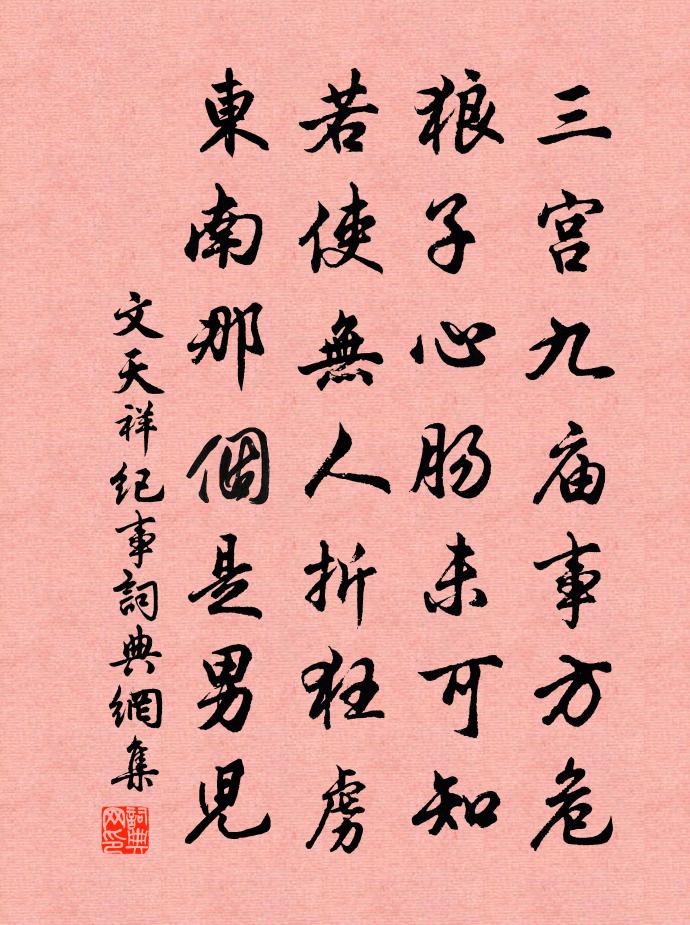 三宫九庙事方危
狼子心肠未可知
若使無人折狂虜
東南那個是男児
文天祥纪事詞典網集
詞典网印